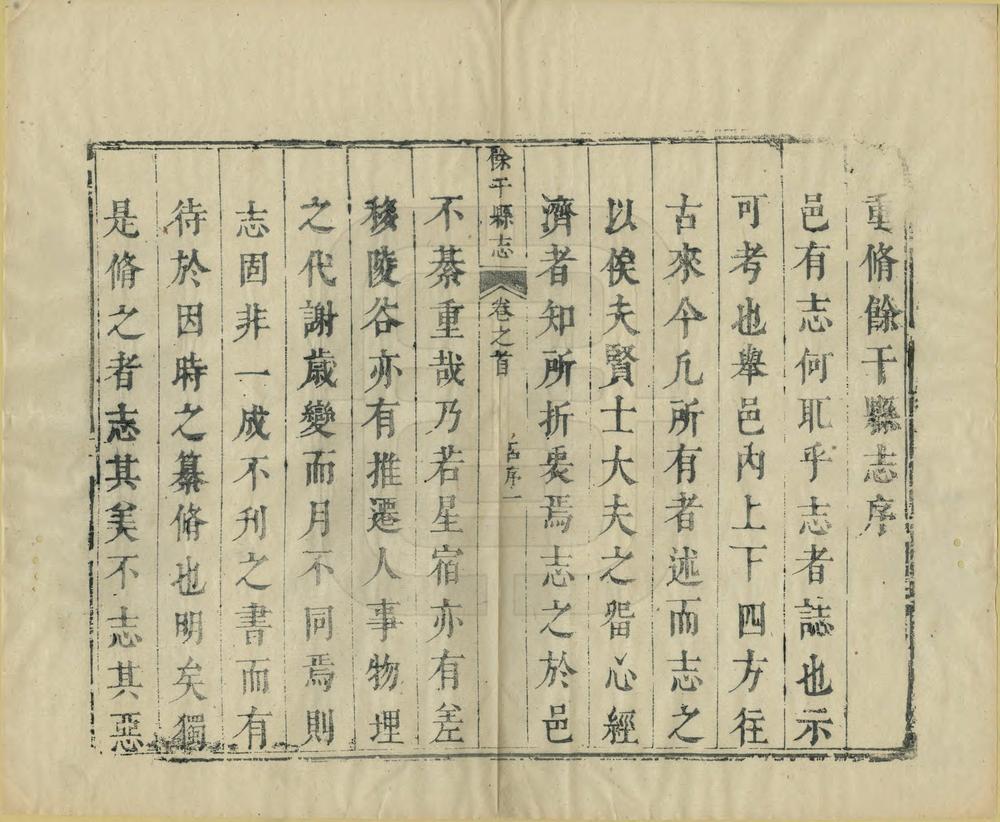 重脩餘干縣志序
邑有志何耴乎志者誌也示
可考也舉邑內上下四方往
古來今凡所有者述而志之
以俟夫賢士大夫之畱心經
濟者知所折衷焉志之於邑
餘干縣志 卷之首 古序一
不綦重哉乃若星宿亦有差
移陵谷亦有推遷人事物理
之代謝歲變而月不同焉則
志固非一成不刊之書而有
待於因時之纂脩也明矣獨
是脩之者志其美不志其惡